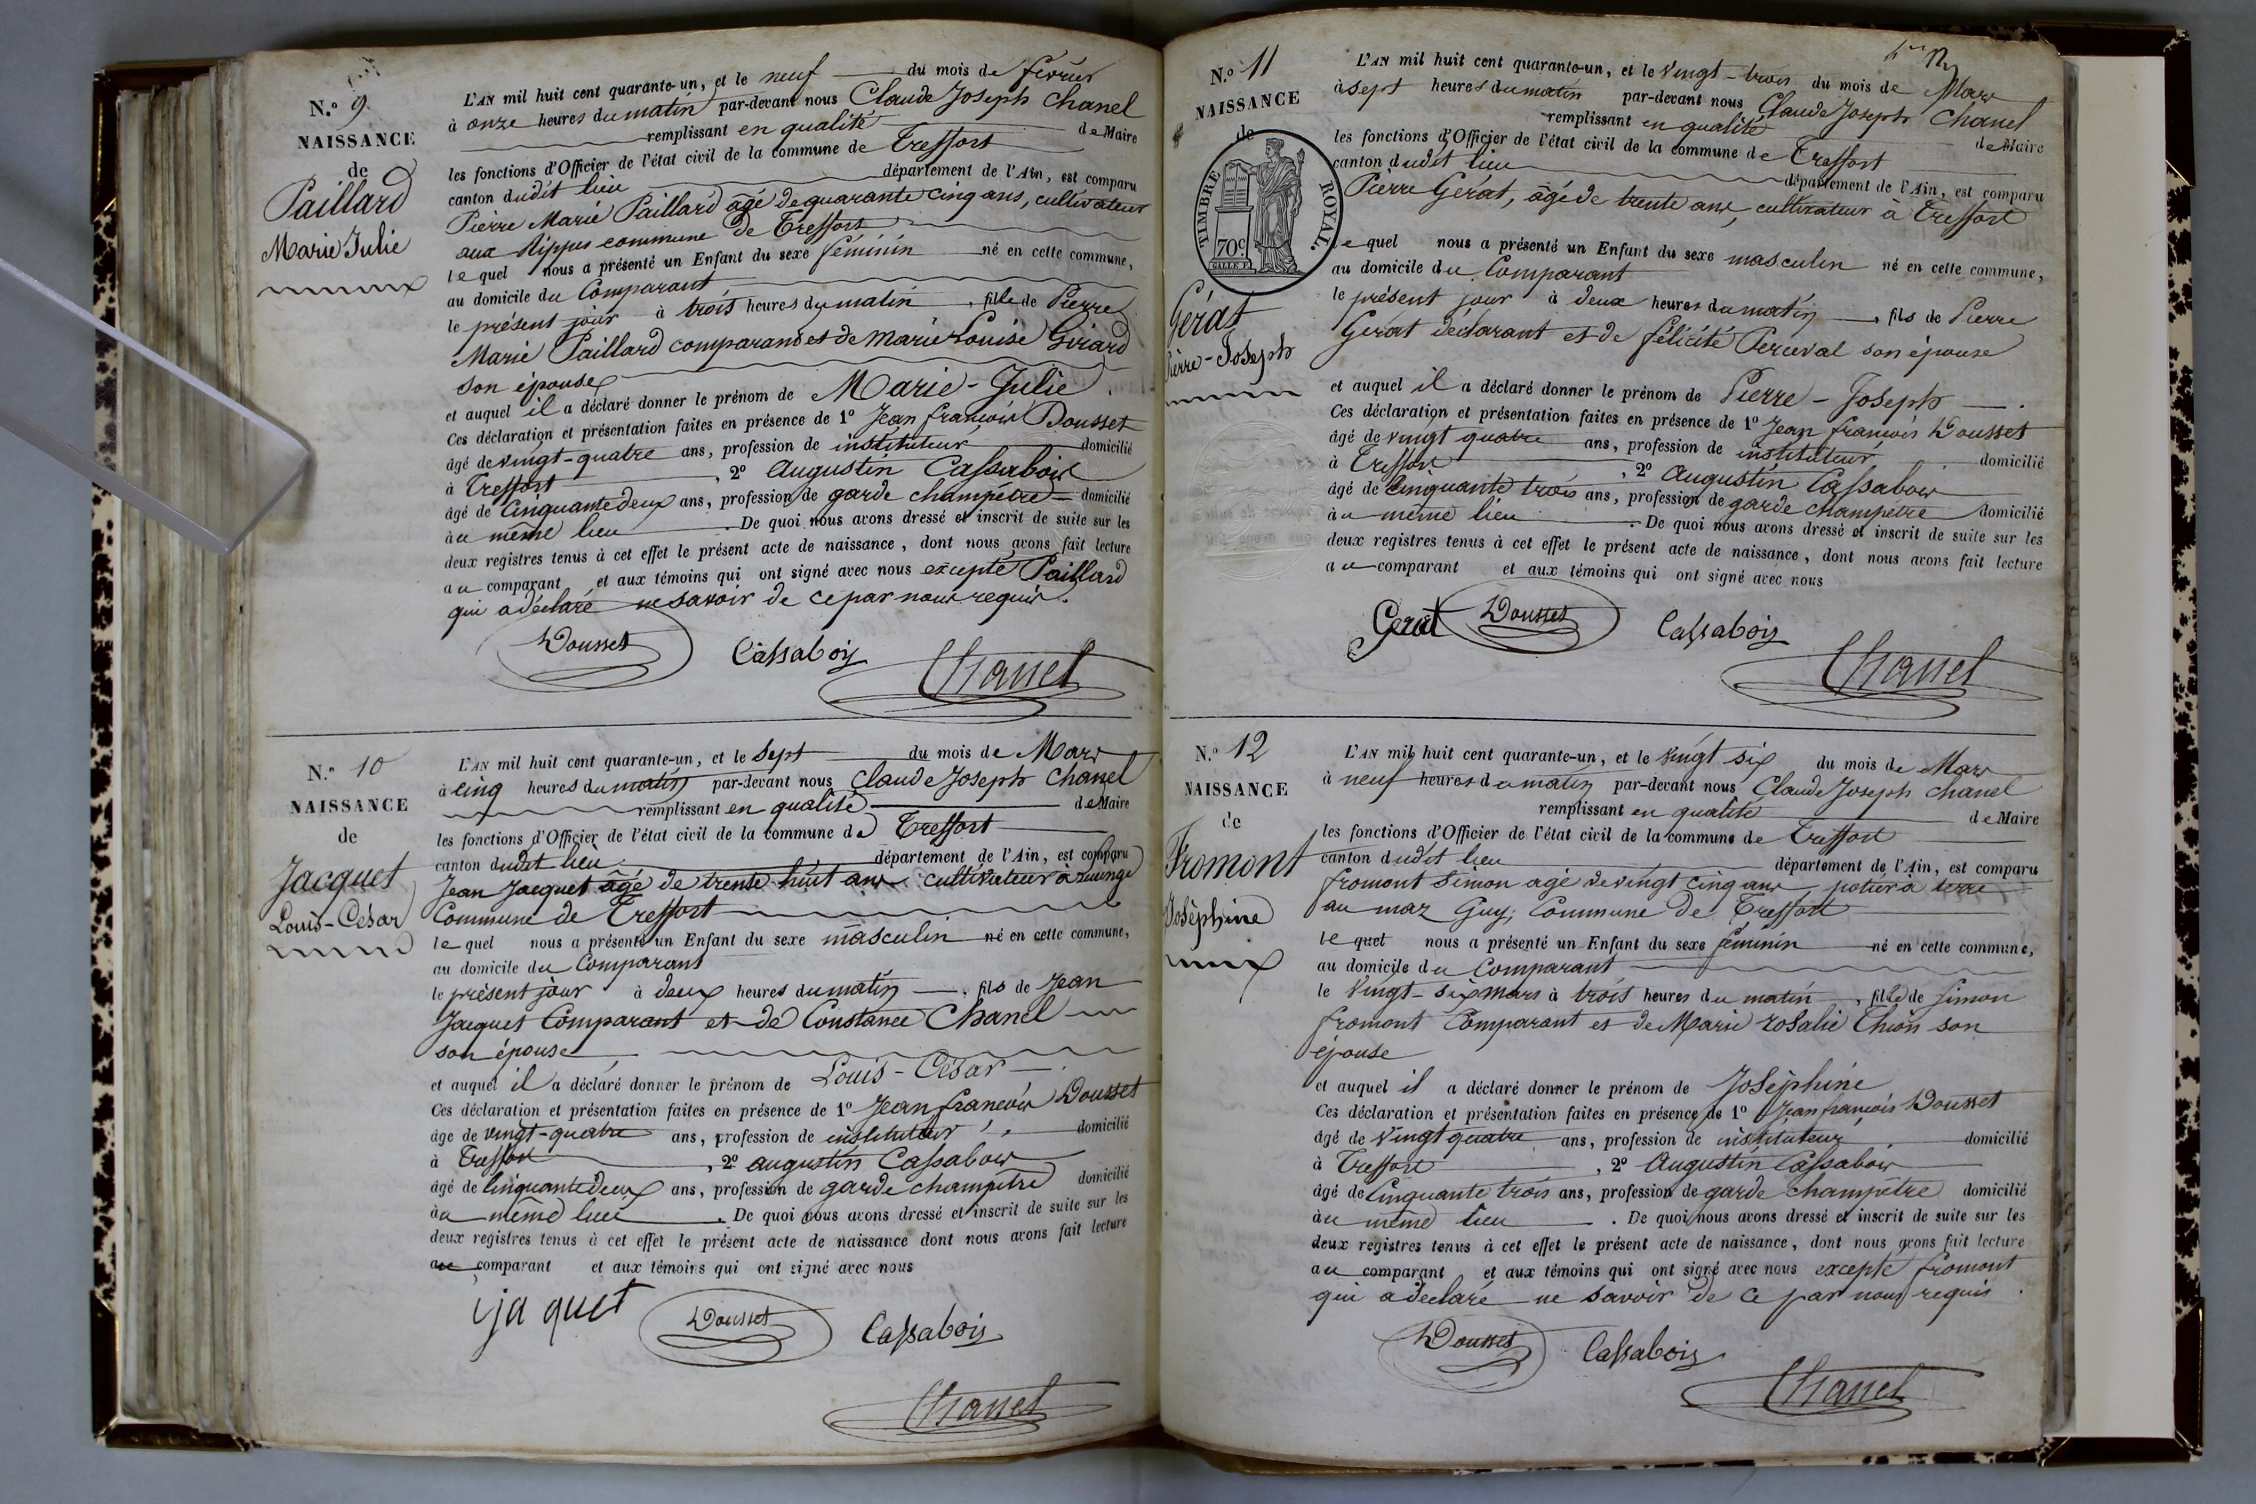 N.º 9
NAISSANCE
de
Paillard
Marie Julie
L'AN mil huit cent quarante-un, et le neuf du mois de février
à onze heures du matin par-devant nous Claude Joseph Chanel
remplissant en qualité de Maire
les fonctions d'Officier de l'état civil de la commune de Treffort
canton dudit lieu département de l'Ain, est comparu
Pierre Marie Paillard âgé de quarante cinq ans, cultivateur
aux Rippes commune de Treffort
lequel nous a présenté un Enfant du sexe féminin né en cette commune,
au domicile du Comparant
le présent jour à trois heures du matin, fille de Pierre
Marie Paillard comparant et de Marie Louise Girard
son épouse
et auquel il a déclaré donner le prénom de Marie-Julie.
Ces déclaration et présentation faites en présence de 1º Jean francois Dousset
âgé de vingt-quatre ans, profession de instituteur domicilié
à Treffort, 2º Augustin Cassabois
âgé de Cinquante deux ans, profession de garde champêtre domicilié
au même lieu. De quoi nous avons dressé et inscrit de suite sur les
deux registres tenus à cet effet le présent acte de naissance, dont nous avons fait lecture
au comparant et aux témoins qui ont signé avec nous excepté Paillard
qui a déclaré ne savoir de ce par nous requis.
Dousset Cassabois
Chanel
N.º 10
NAISSANCE
de
Jacquet
Louis-César
L'AN mil huit cent quarante-un, et le Sept du mois de Mars
à cinq heures du matin par-devant nous Claude Joseph Chanel
remplissant en qualité de Maire
les fonctions d'Officier de l'état civil de la commune de Treffort
canton dudit lieu département de l'Ain, est comparu
Jean Jacquet âgé de trente huit ans cultivateur à
Commune de Treffort
lequel nous a présenté un Enfant du sexe masculin né en cette commune,
au domicile du Comparant
le présent jour à deux heures du matin, fils de Jean
Jacquet Comparant et de Constance Chanel
son épouse
et auquel il a déclaré donner le prénom de Louis-César.
Ces déclaration et présentation faites en présence de 1º Jean francois Dousset
âgé de vingt-quatre ans, profession de instituteur domicilié
à Treffort, 2º augustin Cassabois
âgé de Cinquante deux ans, profession de garde champêtre domicilié
au même lieu. De quoi nous avons dressé et inscrit de suite sur les
deux registres tenus à cet effet le présent acte de naissance dont nous avons fait lecture
au comparant et aux témoins qui ont signé avec nous
jaquet Dousset Cassabois
Chanel
N.º 11
NAISSANCE
de
TIMBRE ROYAL.
70c
Gérat
Pierre-Joseph
L'AN mil huit cent quarante-un, et le Vingt-trois du mois de Mars
à sept heures du matin par-devant nous Claude Joseph Chanel
remplissant en qualité de Maire
les fonctions d'Officier de l'état civil de la commune de Treffort
canton dudit lieu département de l'Ain, est comparu
Pierre Gerat, âgé de trente ans, cultivateur à Treffort
lequel nous a présenté un Enfant du sexe masculin né en cette commune,
au domicile du Comparant
le présent jour à deux heures du matin, fils de Pierre
Gerat déclarant et de félicité Perceval son épouse
et auquel il a déclaré donner le prénom de Pierre-Joseph.
Ces déclaration et présentation faites en présence de 1º Jean francois Dousset
âgé de vingt quatre ans, profession de instituteur domicilié
à Treffort, 2º Augustin Cassabois
âgé de Cinquante trois ans, profession de garde champêtre domicilié
au même lieu. De quoi nous avons dressé et inscrit de suite sur les
deux registres tenus à cet effet le présent acte de naissance, dont nous avons fait lecture
au comparant et aux témoins qui ont signé avec nous
Gerat Dousset Cassabois
Chanel
N.º 12
NAISSANCE
de
Fromont
Josèphine
L'AN mil huit cent quarante-un, et le vingt six du mois de Mars
à neuf heures du matin par-devant nous Claude Joseph Chanel
remplissant en qualité de Maire
les fonctions d'Officier de l'état civil de la commune de Treffort
canton dudit lieu département de l'Ain, est comparu
fromont Simon agé de vingt cinq ans, potier à terre
au maz Guy, Commune de Treffort
lequel nous a présenté un Enfant du sexe féminin né en cette commune,
au domicile du Comparant
le Vingt-six mars à trois heures du matin, fille de Simon
fromont Comparant et de Marie rosalie Thion son
épouse
et auquel il a déclaré donner le prénom de Josèphine
Ces déclaration et présentation faites en présence de 1º Jean francois Dousset
âgé de Vingt quatre ans, profession de instituteur, domicilié
à Treffort, 2º Augustin Cassabois
âgé de Cinquante trois ans, profession de garde champêtre domicilié
au même lieu. De quoi nous avons dressé et inscrit de suite sur les
deux registres tenus à cet effet le présent acte de naissance, dont nous avons fait lecture
au comparant et aux témoins qui ont signé avec nous excepté fromont
qui a déclaré ne savoir de ce par nous requis.
Dousset Cassabois
Chanel